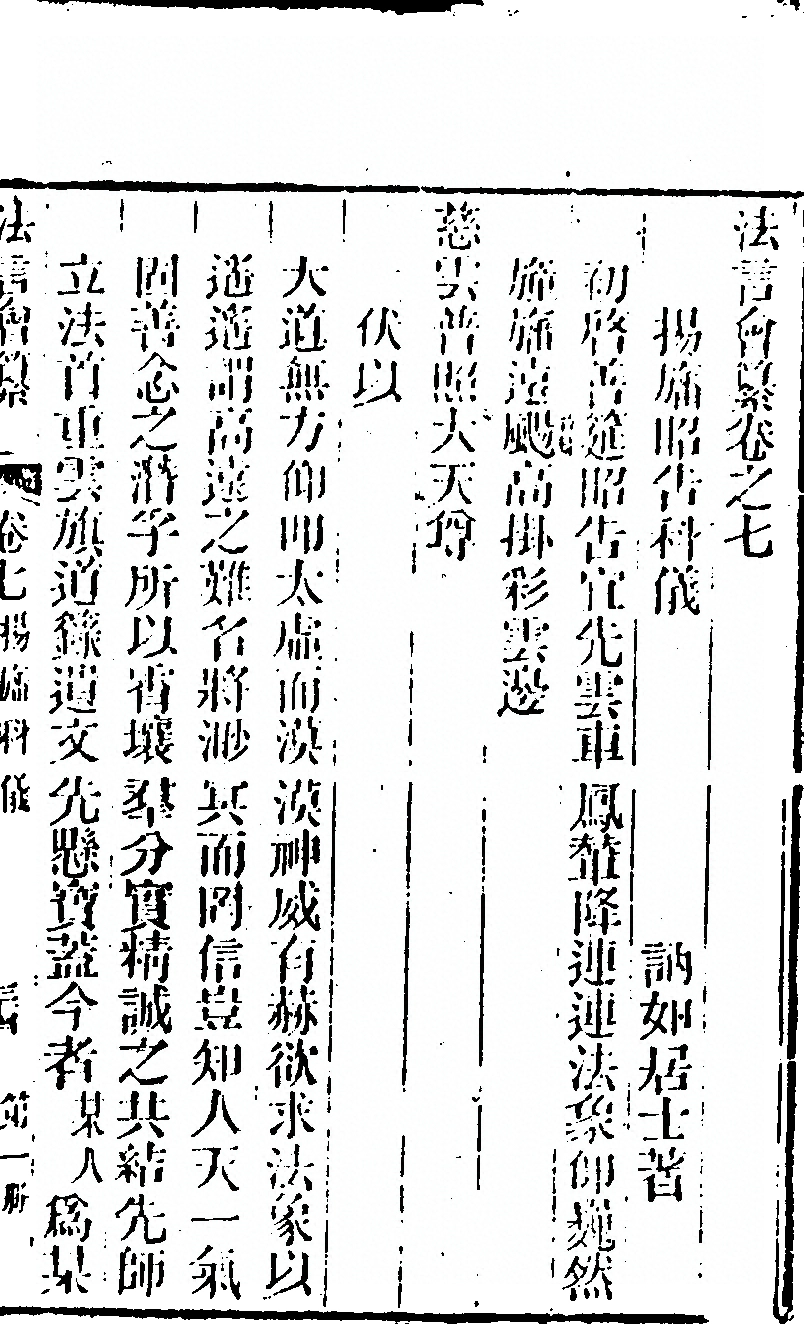 法言會纂卷之七
揚旛昭告科儀
訥如居士著
初啓善筵昭告宜先雲車鳳輦降連連法象仰巍然
旛旛遠颺高掛彩雲邊
慈雲普照大天尊
伏以
大道無方仰叩太虛而漠漠神威有赫欲求法象以
遥遥謂高遠之難名將渺冥而罔信豈知人天一氣
因善念之潛孚所以霄壤羣分實精誠之共結先師
立法首重雲旗道籙遺文先懸寶蓋今者某人爲某
法言會纂 卷七揚旛科儀 第一